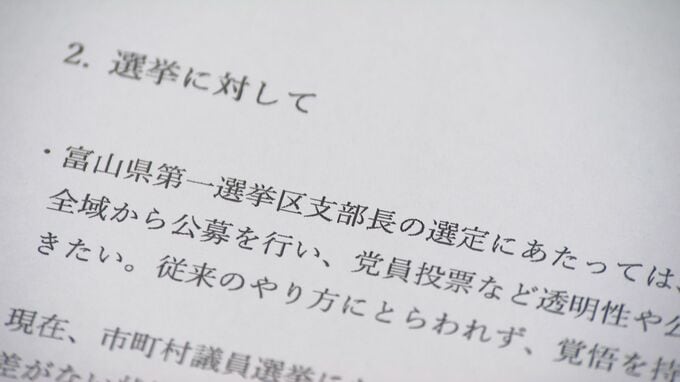 2. 選挙に対して
・富山県第一選挙区支部長の選定にあたっては、
全域から公募を行い、党員投票など透明性や公
きたい。従来のやり方にとらわれず、覚悟を持
現在、市町村議員選挙に
差がない